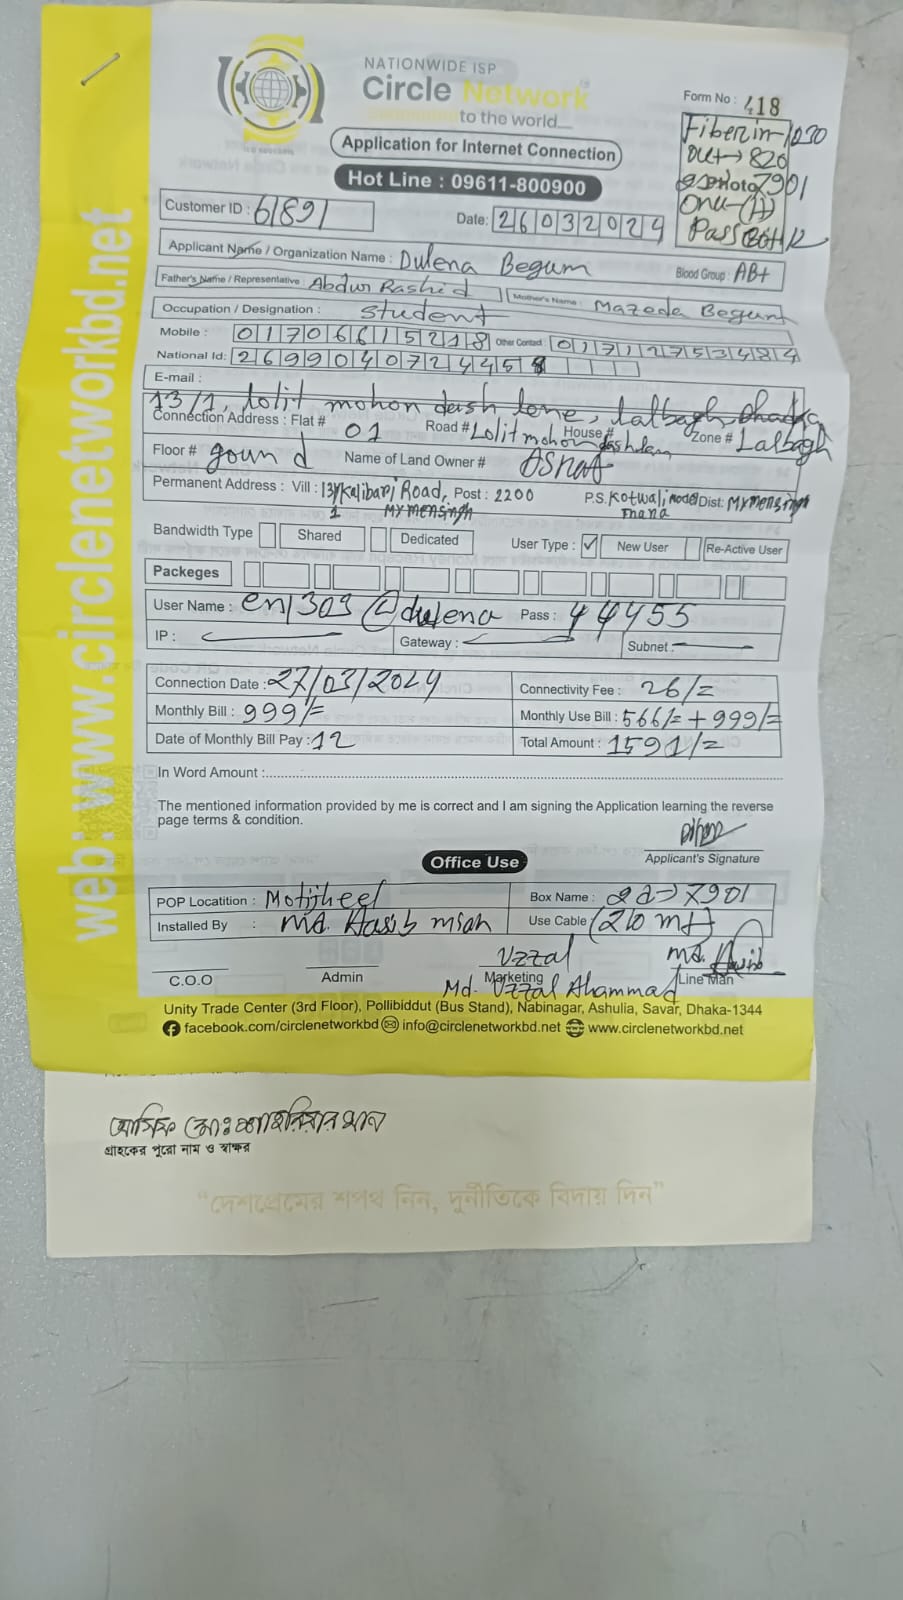 NATIONWIDE ISP
Circle Network
to the world__
Application for Internet Connection
Hot Line : 09611-800900
Form No : 418
Fiber in-1030
out→820
7901
onu-(H)
Pass
Customer ID : 61891
Date: 26032024
Applicant Name / Organization Name : Dulena Begum
Blood Group : AB+
Father's Name / Representative : Abdur Rashid
Mother's Name : Mazeda Begum
Occupation / Designation : Student
Mobile : 01706615218
Other Contact : 01711753484
National Id: 269904072445
E-mail :
13/1, lolit mohon dash lane, lalbagh, Dhaka
Connection Address : Flat # 01 Road # Lolitmohon dash lane House # Zone # Lalbagh
Floor # gound Name of Land Owner #
Permanent Address : Vill : 13/1 Kalibari Road, Mymensingh Post : 2200 P.S. Kotwali model Thana Dist: Mymensingh
Bandwidth Type Shared Dedicated User Type : ✓ New User Re-Active User
Packeges
User Name : en1303@dulena Pass : 44455
IP : Gateway : Subnet :
Connection Date : 27/03/2024
Connectivity Fee : 26/=
Monthly Bill : 999/=
Monthly Use Bill : 566/= + 999/=
Date of Monthly Bill Pay : 12
Total Amount : 1591/=
In Word Amount :
The mentioned information provided by me is correct and I am signing the Application learning the reverse
page terms & condition.
Applicant's Signature
Office Use
POP Locatition : Motijheel
Box Name : 7901
Installed By : Md. Hasib miah
Use Cable (210 mt)
Uzzal
Md. Hasib
C.O.O Admin Marketing Line Man
Md. Uzzal Ahammad
Unity Trade Center (3rd Floor), Pollibiddut (Bus Stand), Nabinagar, Ashulia, Savar, Dhaka-1344
facebook.com/circlenetworkbd info@circlenetworkbd.net www.circlenetworkbd.net
web: www.circlenetworkbd.net
গ্রাহকের পুরো নাম ও স্বাক্ষর
“দেশপ্রেমের শপথ নিন, দুর্নীতিকে বিদায় দিন”